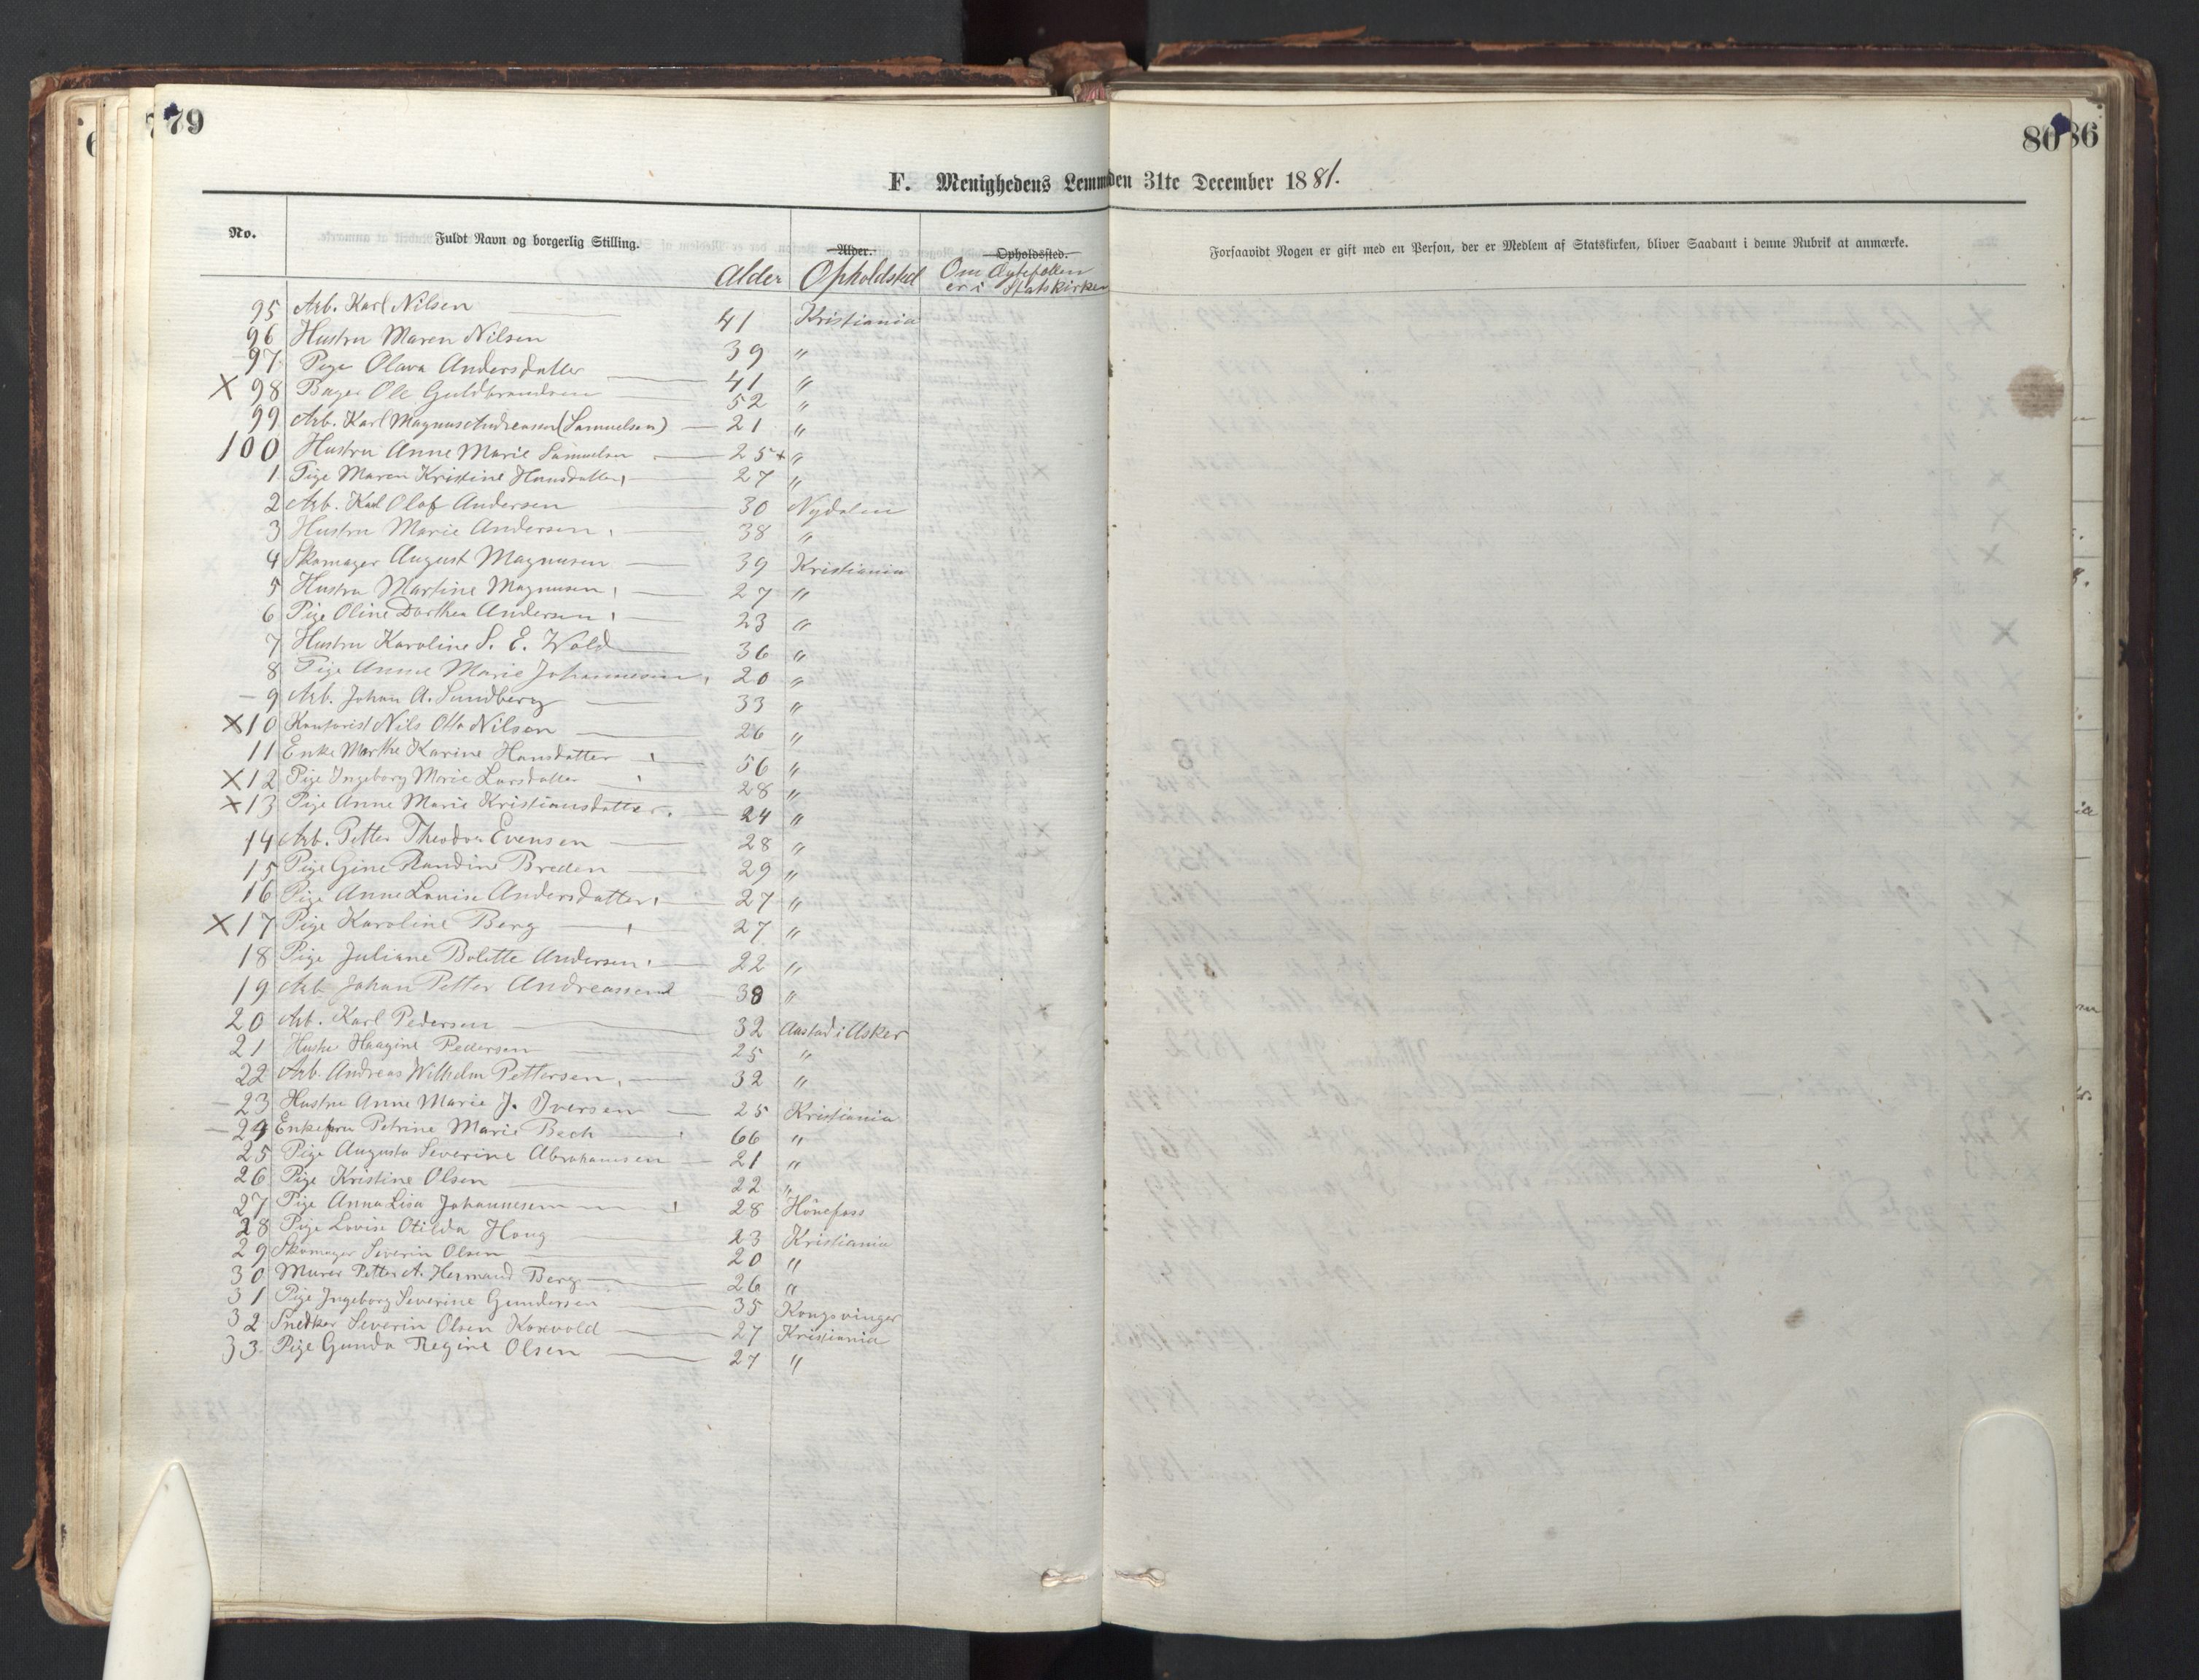 79
80
86
F. Menighedens Lemm den 31te December 1881.
No.
Fuldt Navn og borgerlig Stilling.
Alder.
Opholdssted.
Forsaavidt Nogen er gift med en Person, der er Medlem af Statskirken, bliver Saadant i denne Rubrik at anmærke.
Alder Opholdsted Om Ægtefællen er i Statskirken
95 Arb. Karl Nilsen 41 Kristiania
96 Hustru Maren Nilsen 39 "
97 Pige Olava Andersdatter 41 "
X 98 Bager Ole Guldbrandsen 52 "
99 Arb. Karl Magnus Andreasen (Samuelsen) 21 "
100 Hustru Anne Marie Samuelsen 25 + "
1 Pige Maren Kristine Hansdatter 27 "
2 Arb. Karl Olaf Andersen 30 Nydalen
3 Hustru Marie Andersen 38 "
4 Skomager August Magnusen 39 Kristiania
5 Hustru Martine Magnusen 27 "
6 Pige Oline Dorthea Andersen 23 "
7 Hustru Karoline S. E. Wold 36 "
8 Pige Anne Marie Johannesen 20 "
- 9 Arb. Johan A. Sundberg 33 "
X 10 Kontorist Nils Otto Nilsen 26 "
11 Enke Marthe Karine Hansdatter 56 "
X 12 Pige Ingeborg Marie Larsdatter 28 "
X 13 Pige Anne Marie Kristiansdatter 24 "
14 Arb. Petter Theodor Evensen 28 "
15 Pige Gine Randine Breden 29 "
16 Pige Anne Lovise Andersdatter 27 "
X 17 Pige Karoline Berg 27 "
18 Pige Juliane Bolette Andersen 22 "
19 Arb. Johan Petter Andreassen 38 "
20 Arb. Karl Pedersen 32 Aastad i Asker
21 Hustr Haagine Pedersen 25 "
22 Arb. Andreas Wilhelm Pettersen 32 "
- 23 Hustru Anne Marie J. Iversen 25 Kristiania
- 24 Enkefru Petrine Marie Bech 66 "
25 Pige Augusta Severine Abrahamsen 21 "
26 Pige Kristine Olsen 22 "
27 Pige Anna Lisa Johannesen 28 Hönefoss
28 Pige Lovise Otilda Haug 23 Kristiania
29 Skomager Severin Olsen 20 "
30 Murer Petter A. Hermand Berg 26 "
31 Pige Ingeborg Severine Gundersen 35 Kongsvinger
32 Snedker Severin Olsen Korvold 27 Kristiania
33 Pige Gunda Regine Olsen 27 "